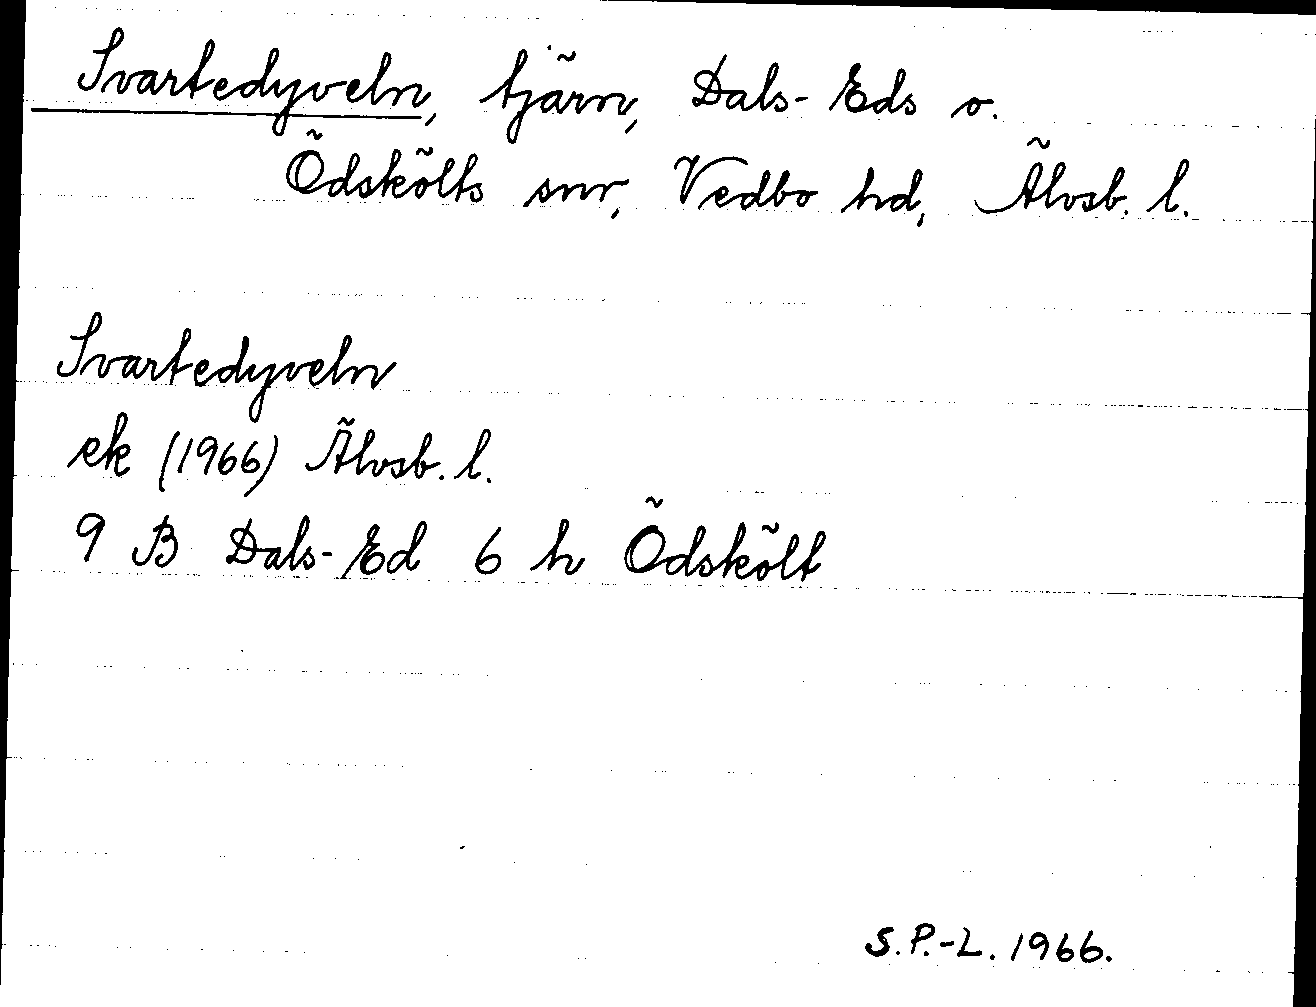 Svartedyveln, tjärn, Dals-Eds o.
Ödskölts snr, Vedbo hd, Älvsb. l.
Svartedyveln
ek (1966) Älvsb. l.
9 B Dals-Ed 6 h Ödskölt
S.P.-L. 1966.